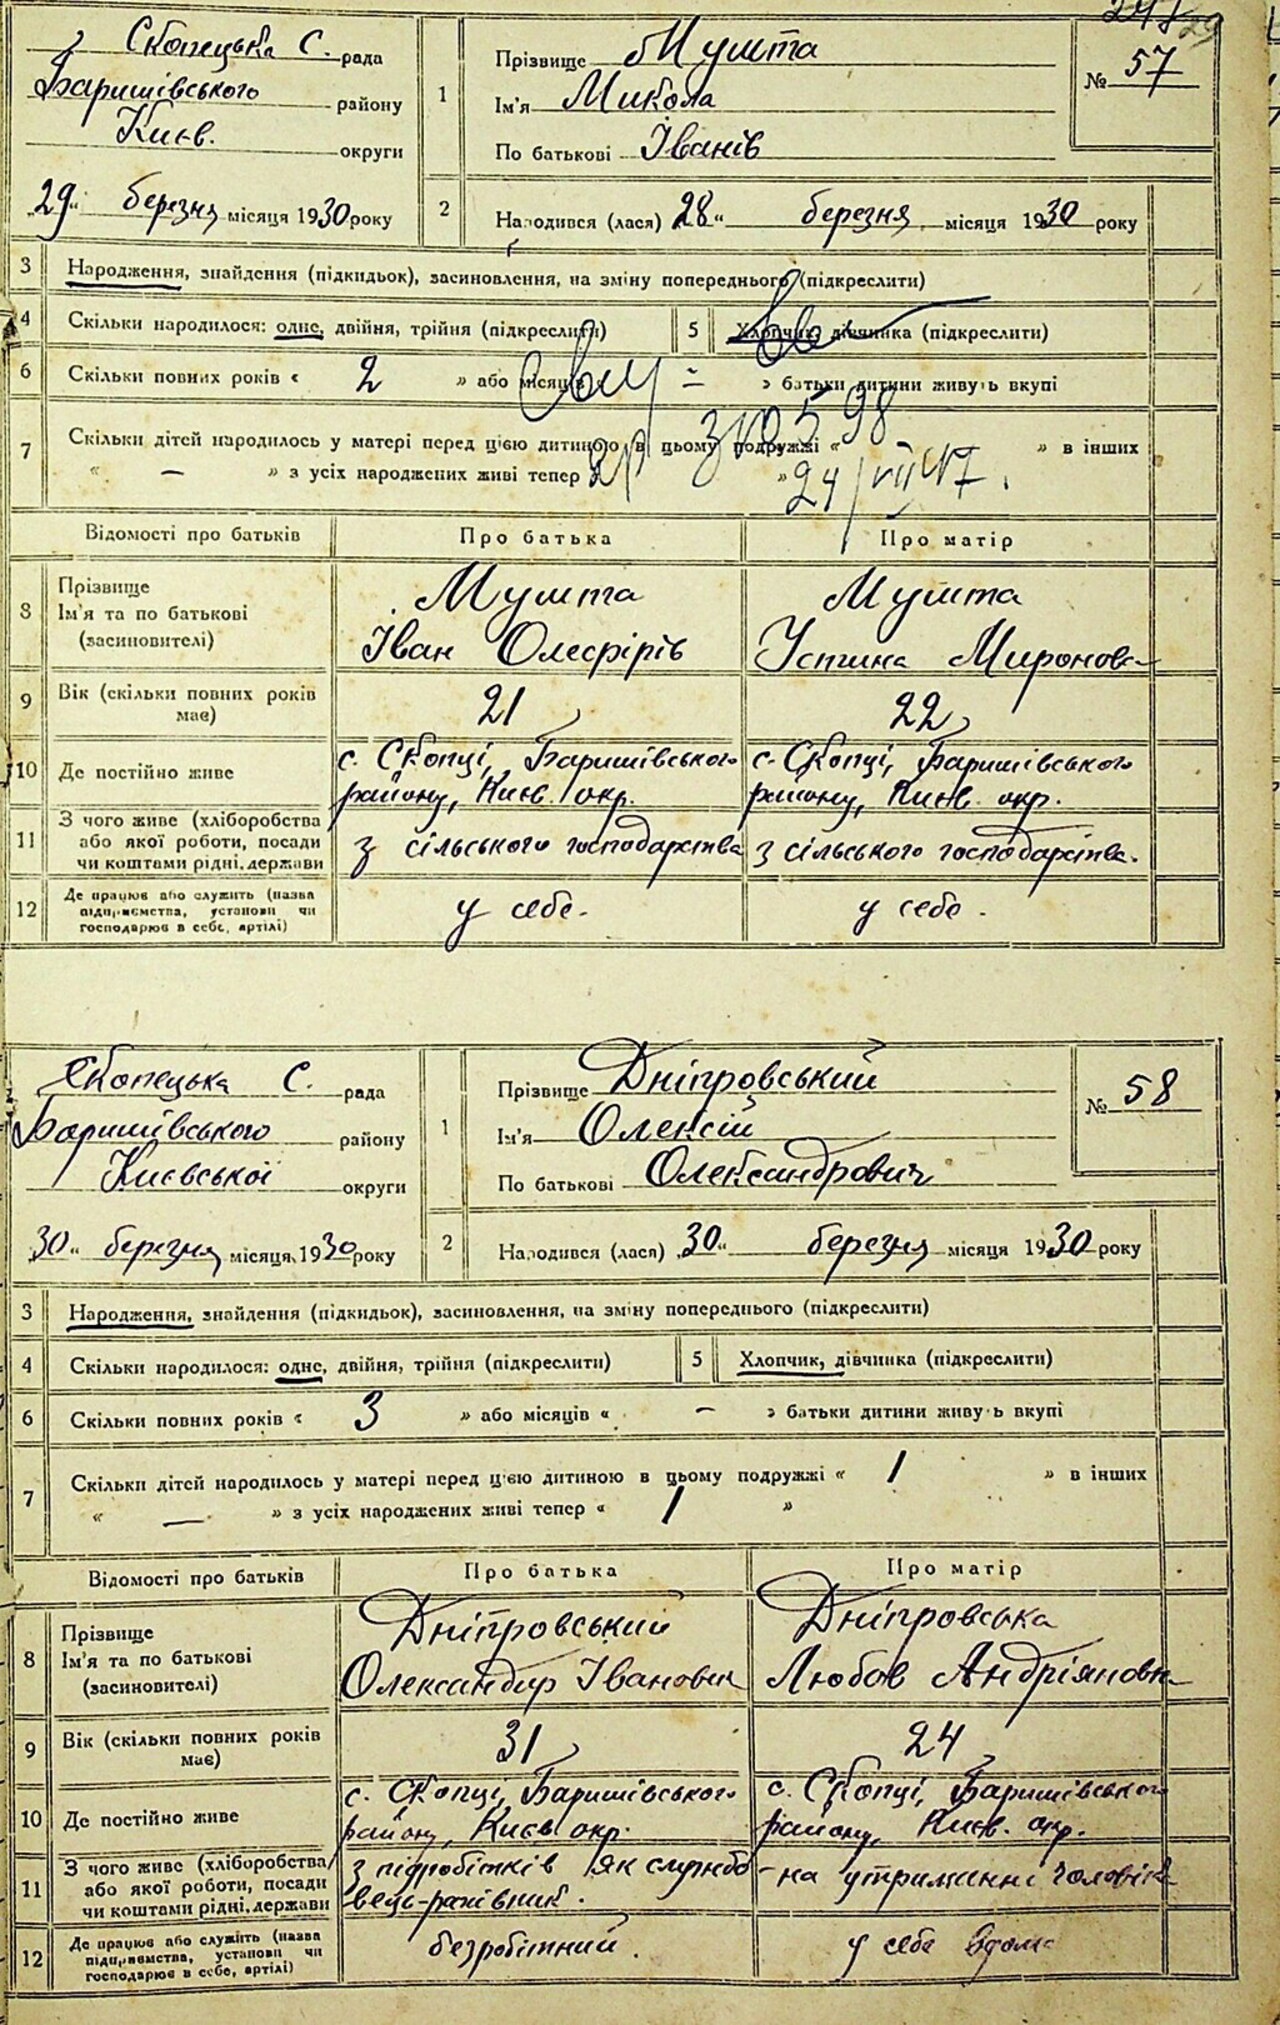 Скопецька С. рада
Баришівського району
Києв. округи
„29“ березня місяця 1930 року
1
Прізвище Мушта
Ім'я Микола
По батькові Іванів
№ 57
2
Народився (лася) 28 “ березня місяця 1930 року
3 Народження, знайдення (підкидьок), засиновлення, на зміну попереднього (підкреслити)
4 Скільки народилося: одне, двійня, трійня (підкреслити) 5 Хлопчик, дівчинка (підкреслити)
6 Скільки повних років « 2 » або місяців – » батьки дитини живуть вкупі
7 Скільки дітей народилось у матері перед цією дитиною в цьому подружжі « » в інших
« — » з усіх народжених живі тепер « »
24/VII 47.
Відомості про батьків Про батька Про матір
8 Прізвище Ім'я та по батькові (засиновителі)
Мушта Іван Олефірів
Мушта Устина Миронова
9 Вік (скільки повних років має) 21 22
10 Де постійно живе
с. Скопці, Баришівського району, Києв. окр.
с. Скопці, Баришівського району, Києв. окр.
11 З чого живе (хліборобства або якої роботи, посади чи коштами рідні, держави
з сільського господарства з сільського господарства.
12 Де працює або служить (назва підприємства, установи чи господарює в себе, артілі)
у себе. у себе.
Скопецька С. рада
Баришівського району
Києвської округи
30“ березня місяця 1930 року
1
Прізвище Дніпровський
Ім'я Олексій
По батькові Олександрович
№ 58
2
Народився (лася) „30“ березня місяця 1930 року
3 Народження, знайдення (підкидьок), засиновлення, на зміну попереднього (підкреслити)
4 Скільки народилося: одне, двійня, трійня (підкреслити) 5 Хлопчик, дівчинка (підкреслити)
6 Скільки повних років « 3 » або місяців « – » батьки дитини живуть вкупі
7 Скільки дітей народилось у матері перед цією дитиною в цьому подружжі « 1 » в інших
« — » з усіх народжених живі тепер « 1 »
Відомості про батьків Про батька Про матір
8 Прізвище Ім'я та по батькові (засиновителі)
Дніпровський Олександр Іванович
Дніпровська Любов Андріяновна
9 Вік (скільки повних років має) 31 24
10 Де постійно живе
с. Скопці, Баришівського району, Києв окр.
с. Скопці, Баришівського району, Києв. окр.
11 З чого живе (хліборобства або якої роботи, посади чи коштами рідні, держави
з підробітків як службовець-рахівник.
на утриманні чоловіка
12 Де працює або служить (назва підприємства, установи чи господарює в себе, артілі)
безробітний. у себе вдома